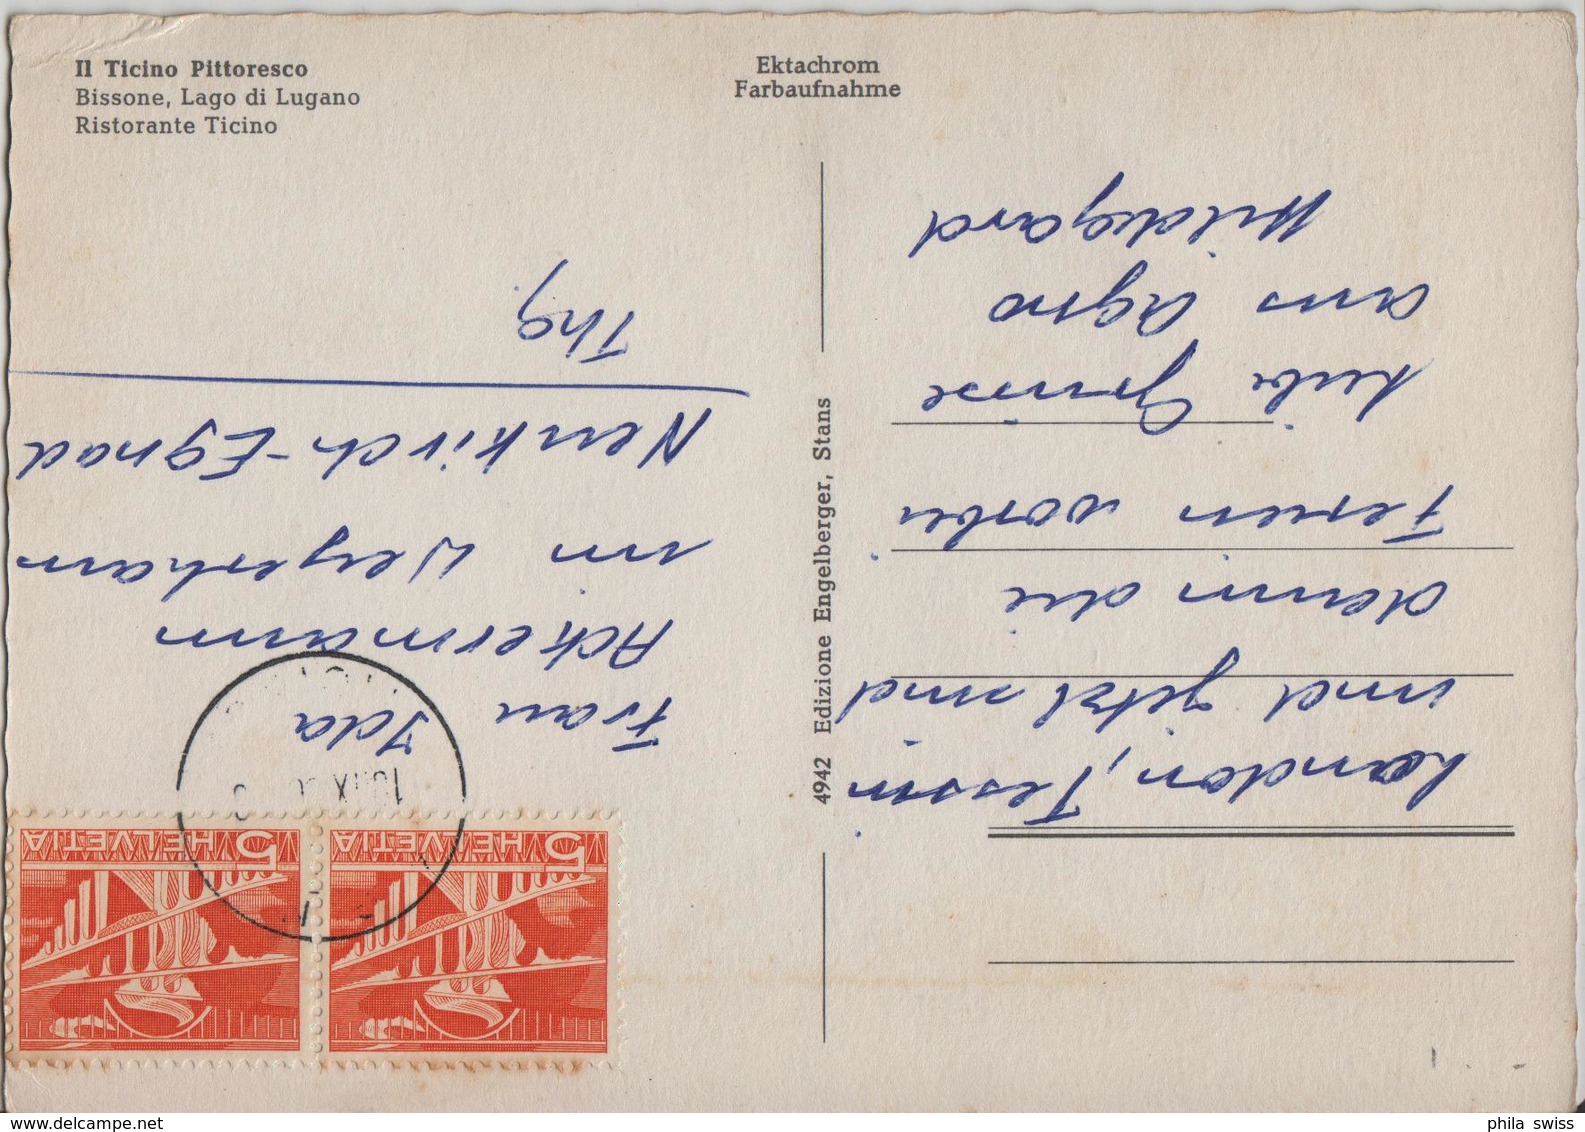 Il Ticino Pittoresco
Bissone, Lago di Lugano
Ristorante Ticino
Ektachrom
Farbaufnahme
4942 Edizione Engelberger, Stans
London, Tessin
und jetzt sind
dann die
Ferien vorbei
Liebi Grüsse
aus Agno
Hildegard
Frau Ida
Ackermann
in Weyerhaus
Neukirch-Egnad
Thg.
5 HELVETIA
5 HELVETIA
phila swiss